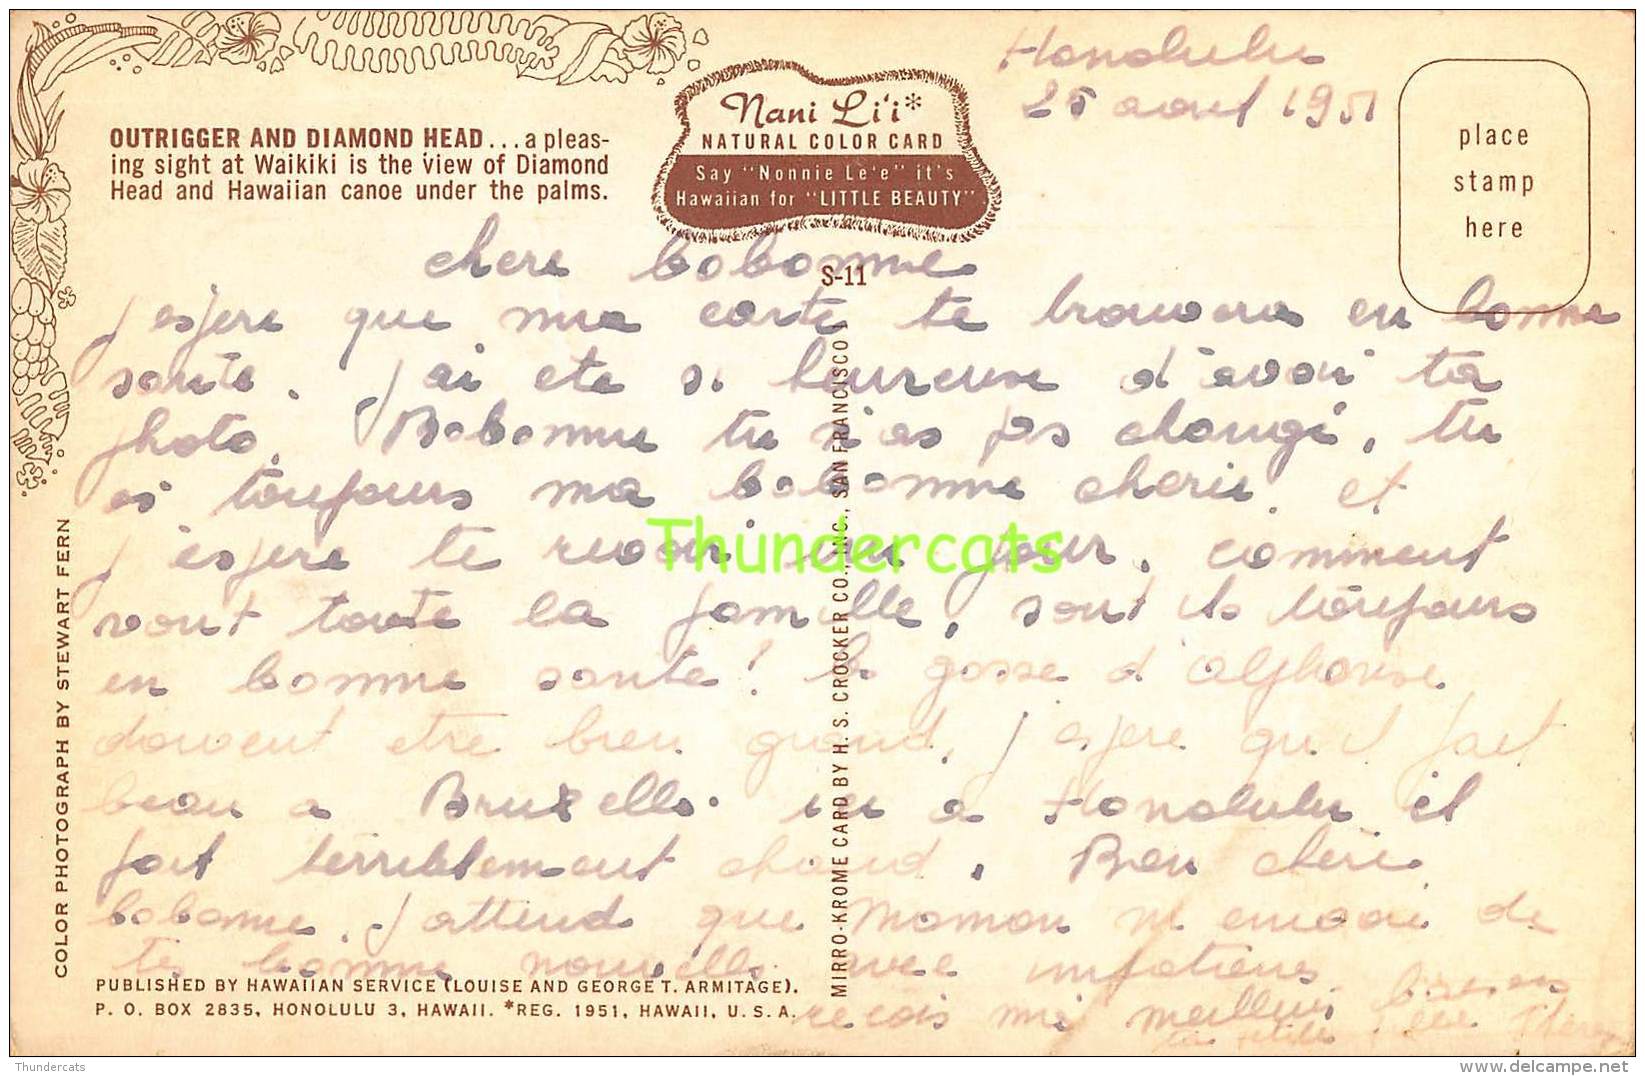 Honolulu
25 aout 1951
OUTRIGGER AND DIAMOND HEAD...a pleas-
ing sight at Waikiki is the view of Diamond
Head and Hawaiian canoe under the palms.
Nani Li'i*
NATURAL COLOR CARD
Say "Nonnie Le'e" it's
Hawaiian for "LITTLE BEAUTY"
place
stamp
here
S-11
chere bobonne
j espere que ma carte te trouvera en bonne
sante. j ai ete si heureuse d'avoir ta
photo. Bobonne tu n'as pas changé, tu
es toujours ma bobonne cherie et
j'espere te revoir un jour, comment
vont toute la famille, sont ils toujours
en bonne sante! le gosse d'alphonse
doivent etre bien grand, j espere qu il fait
beau a Bruxelles ici a Honolulu il
fait terriblement chaud. Bien chère
bobonne, j attend que maman m envoie de
tes bonne nouvelle avec impatience
recois mes meilleurs baisers
ta petite
COLOR PHOTOGRAPH BY STEWART FERN
MIRRO-KROME CARD BY H. S. CROCKER CO., INC., SAN FRANCISCO
PUBLISHED BY HAWAIIAN SERVICE (LOUISE AND GEORGE T. ARMITAGE),
P. O. BOX 2835, HONOLULU 3, HAWAII. *REG. 1951, HAWAII, U. S. A.
Thundercats
Thundercats
delcampe.net